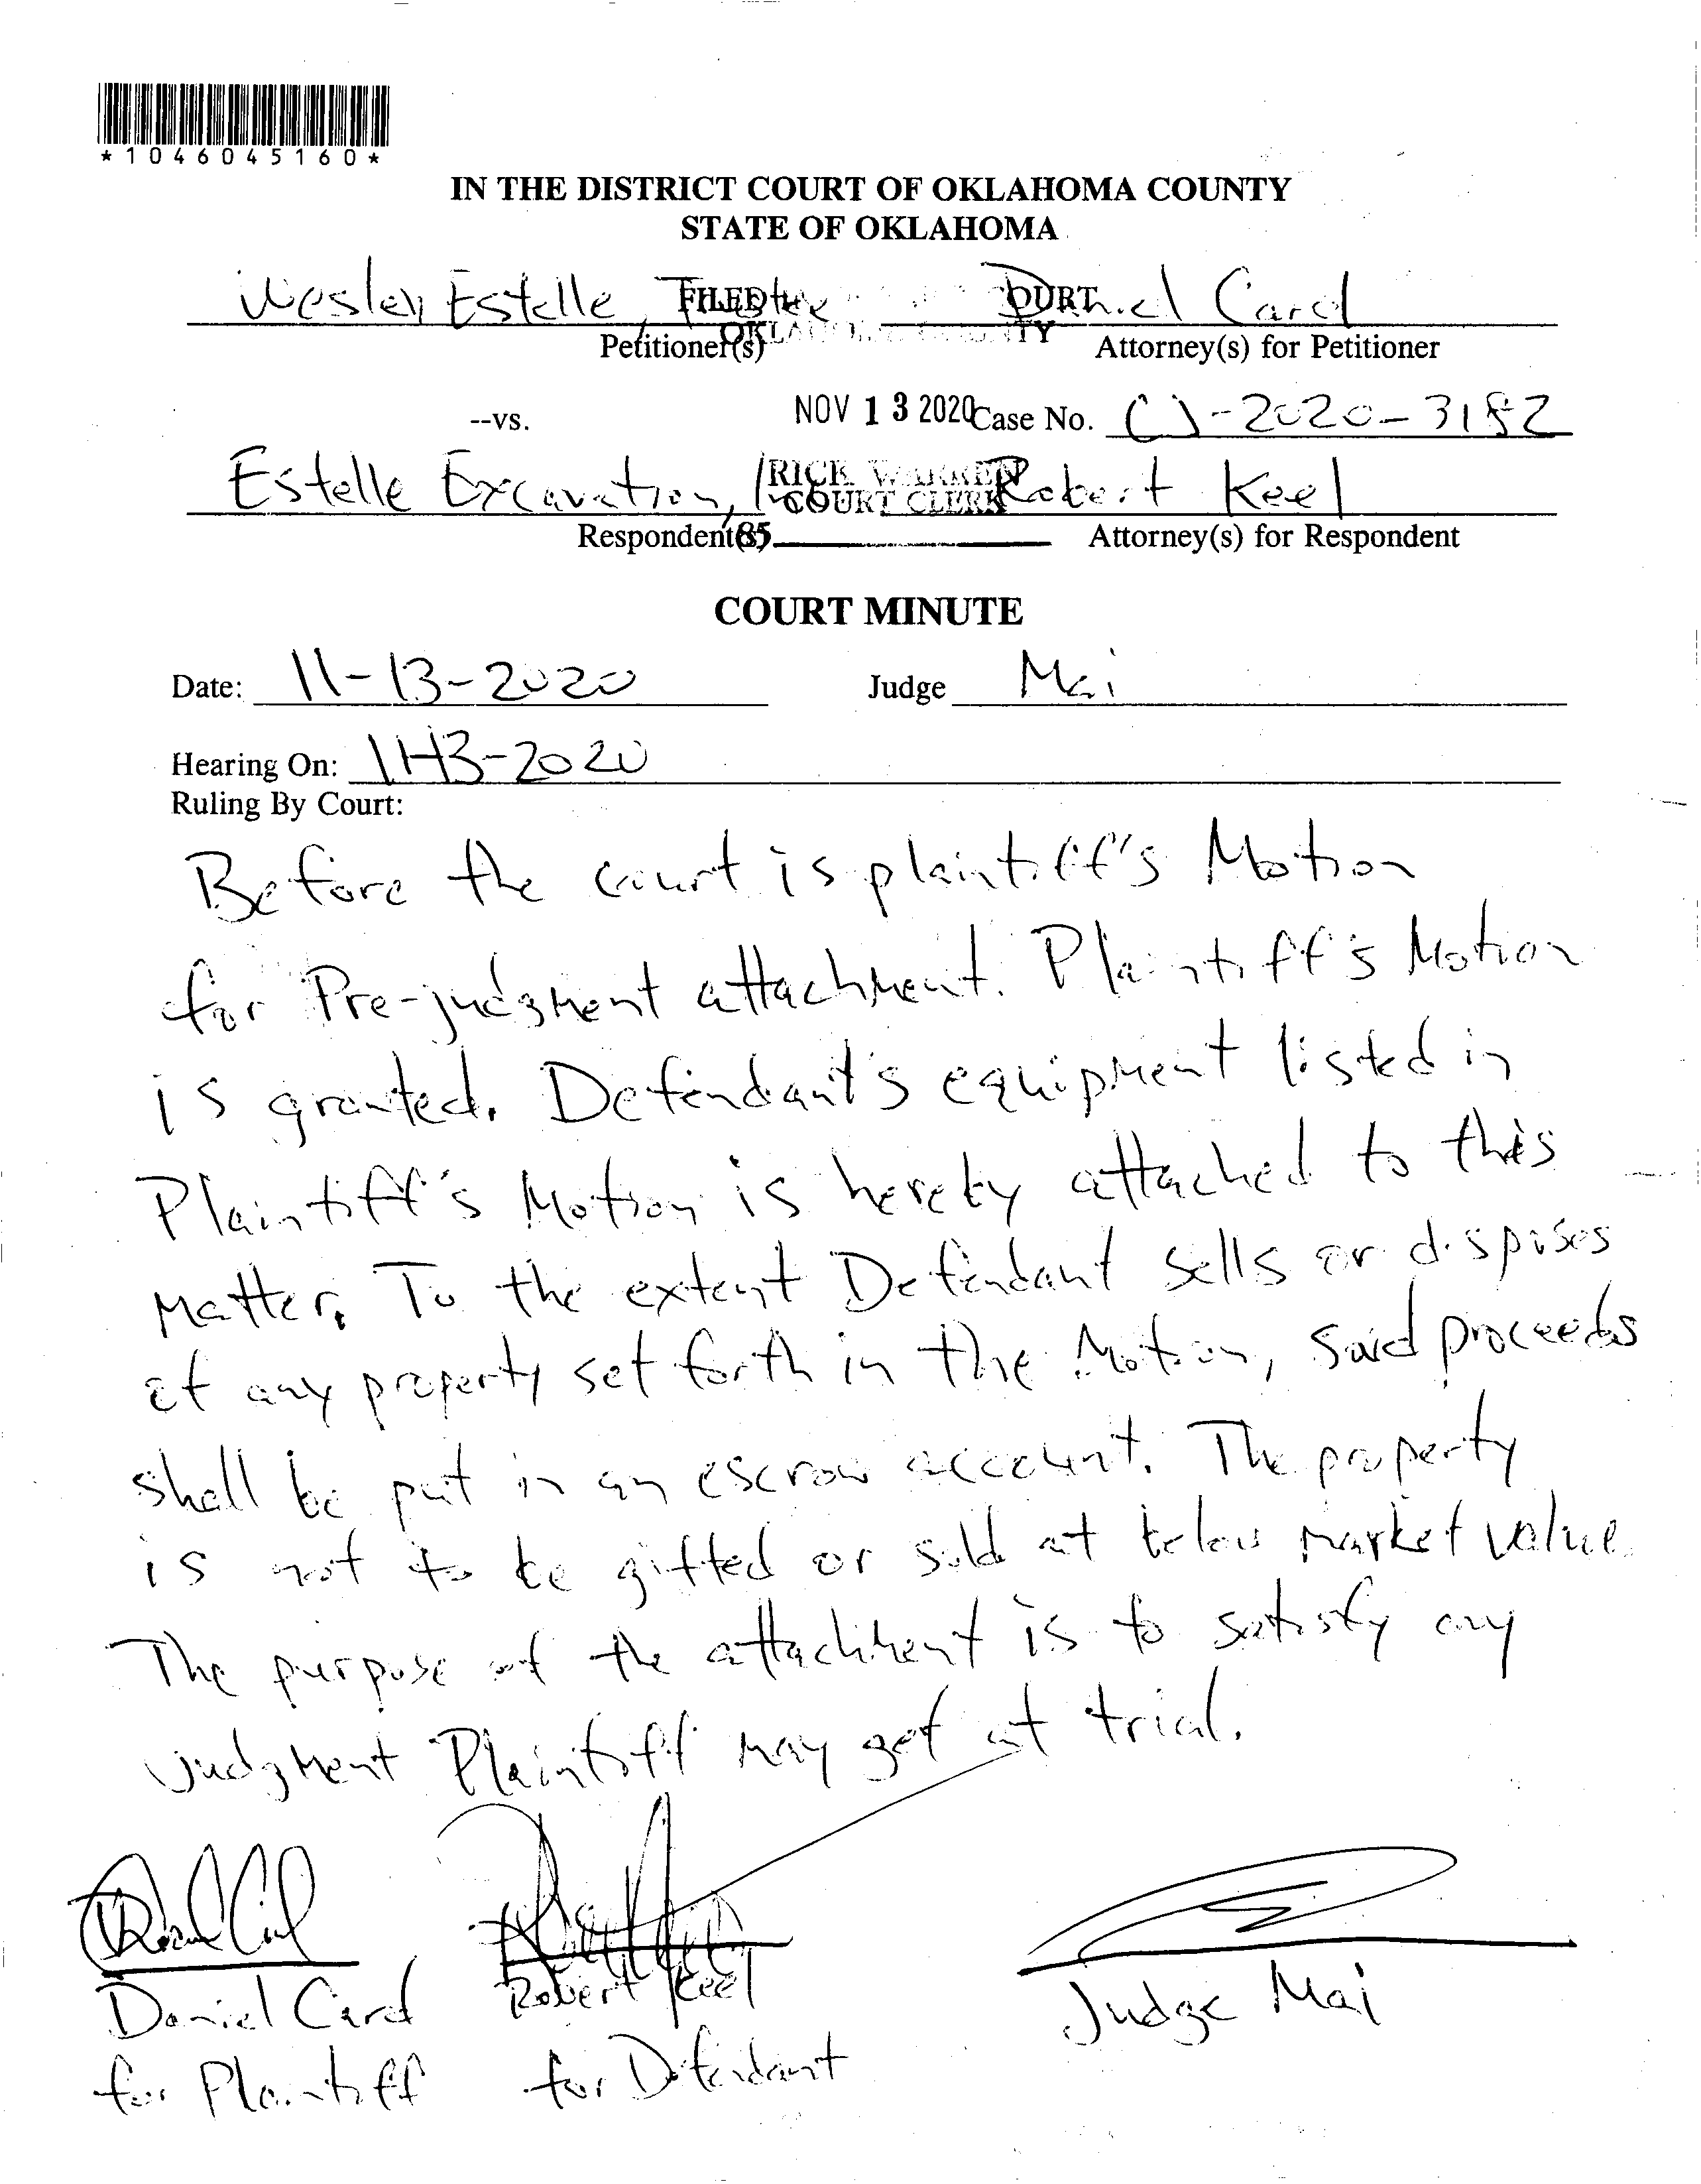 *1046045160*
IN THE DISTRICT COURT OF OKLAHOMA COUNTY
STATE OF OKLAHOMA
Wesley Estelle, Trustee Daniel Card
FILED COURT
OKLAHOMA COUNTY
Petitioner(s) Attorney(s) for Petitioner
--vs. NOV 13 2020 Case No. CJ-2020-3182
Estelle Excavation, Inc Robert Keel
RICK WARREN
COURT CLERK
Respondent(s) 85 Attorney(s) for Respondent
COURT MINUTE
Date: 11-13-2020 Judge Mai
Hearing On: 11-13-2020
Ruling By Court:
Before the court is plaintiff's Motion
for Pre-judgment attachment. Plaintiff's Motion
is granted. Defendant's equipment listed in
Plaintiff's Motion is hereby attached to this
matter. To the extent Defendant sells or disposes
of any property set forth in the Motion, said proceeds
shall be put in an escrow account. The property
is not to be gifted or sold at below market value.
The purpose of the attachment is to satisfy any
judgment Plaintiff may get at trial.
Daniel Card Robert Keel Judge Mai
for Plaintiff for Defendant